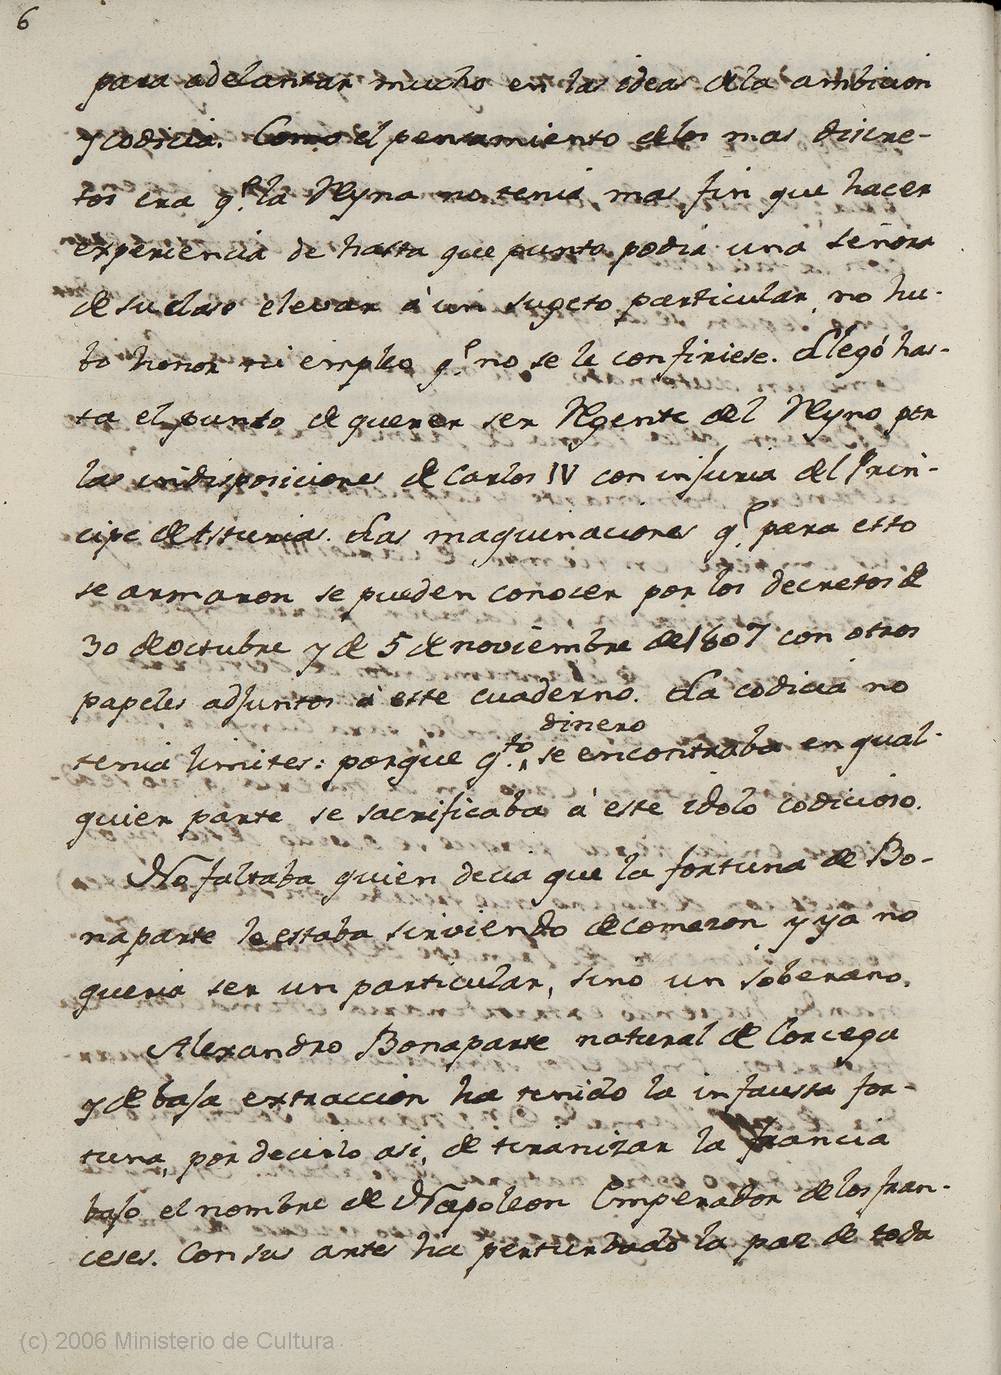 6
para adelantar mucho en las ideas de la ambicion
y codicia. Como el pensamiento de los mas discre-
tos era q.e la Reyna no tenia mas fin que hacer
experiencia de hasta que punto podia una señora
de su clase elevar à un sugeto particular, no hu-
bo honor ni empleo q.e no se le confiriese. Llegó has-
ta el punto de querer ser Regente del Reyno por
las indisposiciones de Carlos IV con injuria del Prin-
cipe de Asturias. Las maquinaciones q.e para esto
se armaron se pueden conocer por los decretos de
30 de octubre y de 5 de noviembre de 1807 con otros
papeles adjuntos à este cuaderno. La codicia no
dinero
tenia limites: porque q.to se encontraba en qual-
quier parte se sacrificaba à este idolo codicioso.
No faltaba quien decia que la fortuna de Bo-
naparte le estaba sirviendo de comezon y ya no
queria ser un particular, sino un soberano.
Alexandro Bonaparte natural de Corcega
y de baja extraccion ha tenido la infausta for-
tuna, por decirlo asi, de tiranizar la francia
bajo el nombre de Napoleon Emperador de los fran-
ceses. Con sus artes ha perturbado la paz de toda
(c) 2006 Ministerio de Cultura